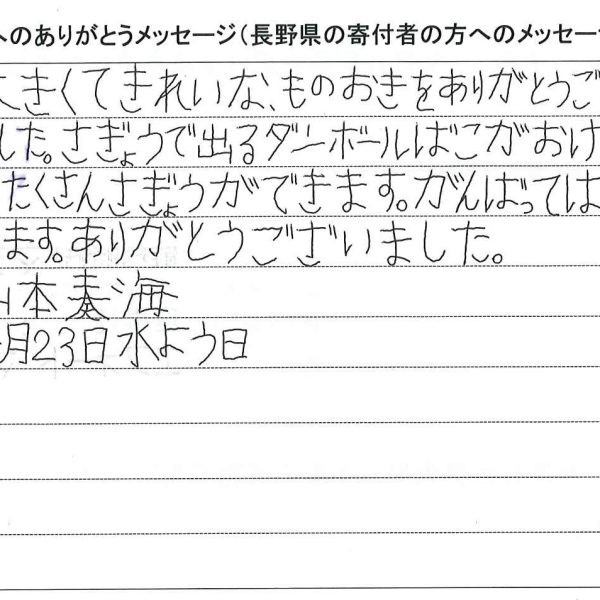 へのありがとうメッセージ（長野県の寄付者の方へのメッセー
きくてきれいな、ものおきをありがとうご
した。さぎょうで出るダンボールばこがおけ
たくさんさぎょうができます。がんばっては
ます。ありがとうございました。
本奏海
月23日水よう日